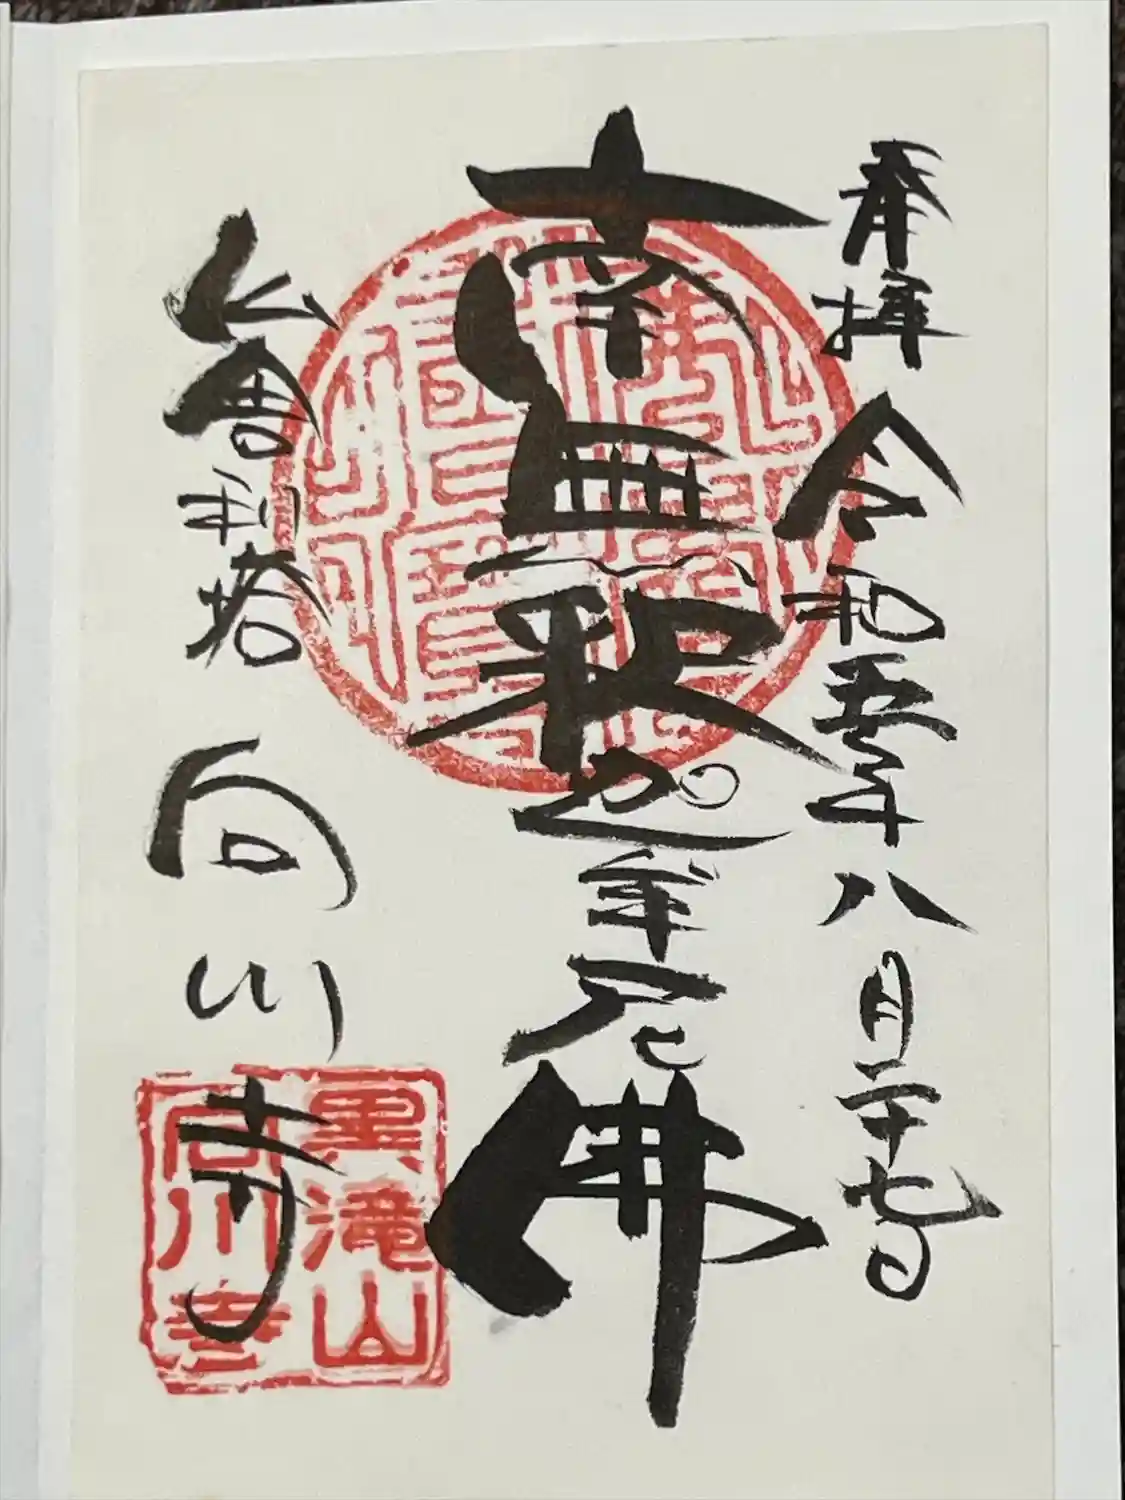 奉拝 令和五年八月二十七日
南無釈迦牟尼佛
仏舎利塔 向川寺
黒滝山
向川寺